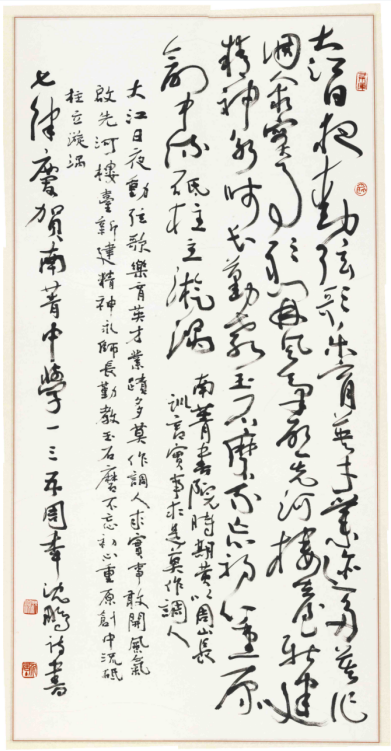 大江日夜動弦歌樂育英才業迹多莫作
調人求實事敢開風氣啟先河樓臺新建
精神永師長勤教玉石磨不忘初心重原
創中流砥柱立漩渦
南菁書院時期黄以周山長
訓言實事求是莫作調人
大江日夜動弦歌樂育英才業蹟多莫作調人求實事敢開風氣
啟先河樓臺新建精神永師長勤教玉石磨不忘初心重原創中流砥
柱立漩渦
七律慶賀南菁中學一三五周年沈鵬詩書